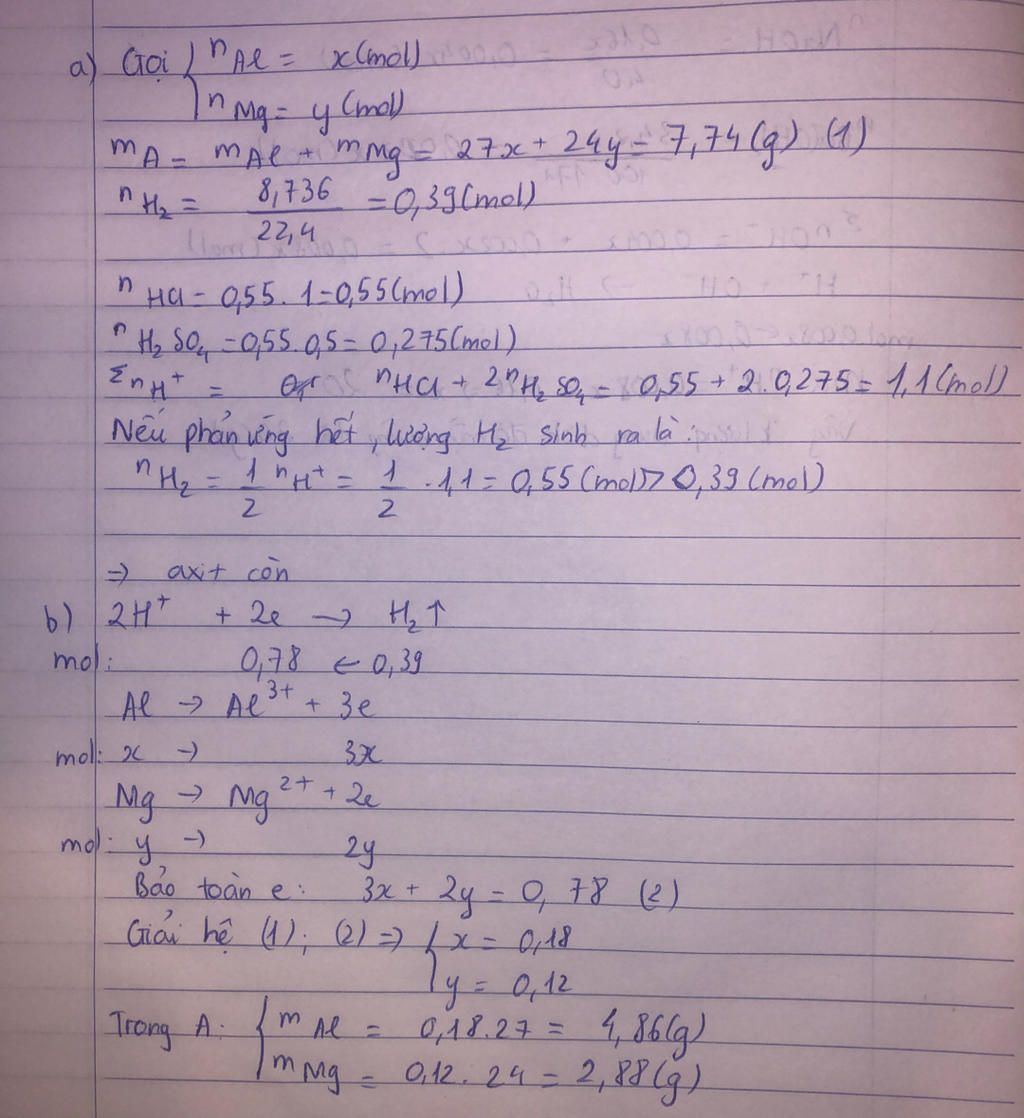 a) Gọi { nAl = x(mol)
nMg = y(mol)
mA = mAl + mMg = 27x + 24y = 7,74(g) (1)
nH2 = 8,736 / 22,4 = 0,39(mol)
nHCl = 0,55 . 1 = 0,55(mol)
nH2SO4 = 0,55 . 0,5 = 0,275(mol)
ΣnH+ = nHCl + 2nH2SO4 = 0,55 + 2 . 0,275 = 1,1(mol)
Nếu phản ứng hết, lượng H2 sinh ra là:
nH2 = 1/2 nH+ = 1/2 . 1,1 = 0,55(mol) > 0,39(mol)
=> axit còn
b) 2H+ + 2e → H2↑
mol: 0,78 ← 0,39
Al → Al3+ + 3e
mol: x → 3x
Mg → Mg2+ + 2e
mol: y → 2y
Bảo toàn e: 3x + 2y = 0,78 (2)
Giải hệ (1); (2) => { x = 0,18
y = 0,12
Trong A: { mAl = 0,18.27 = 4,86(g)
mMg = 0,12 . 24 = 2,88(g)